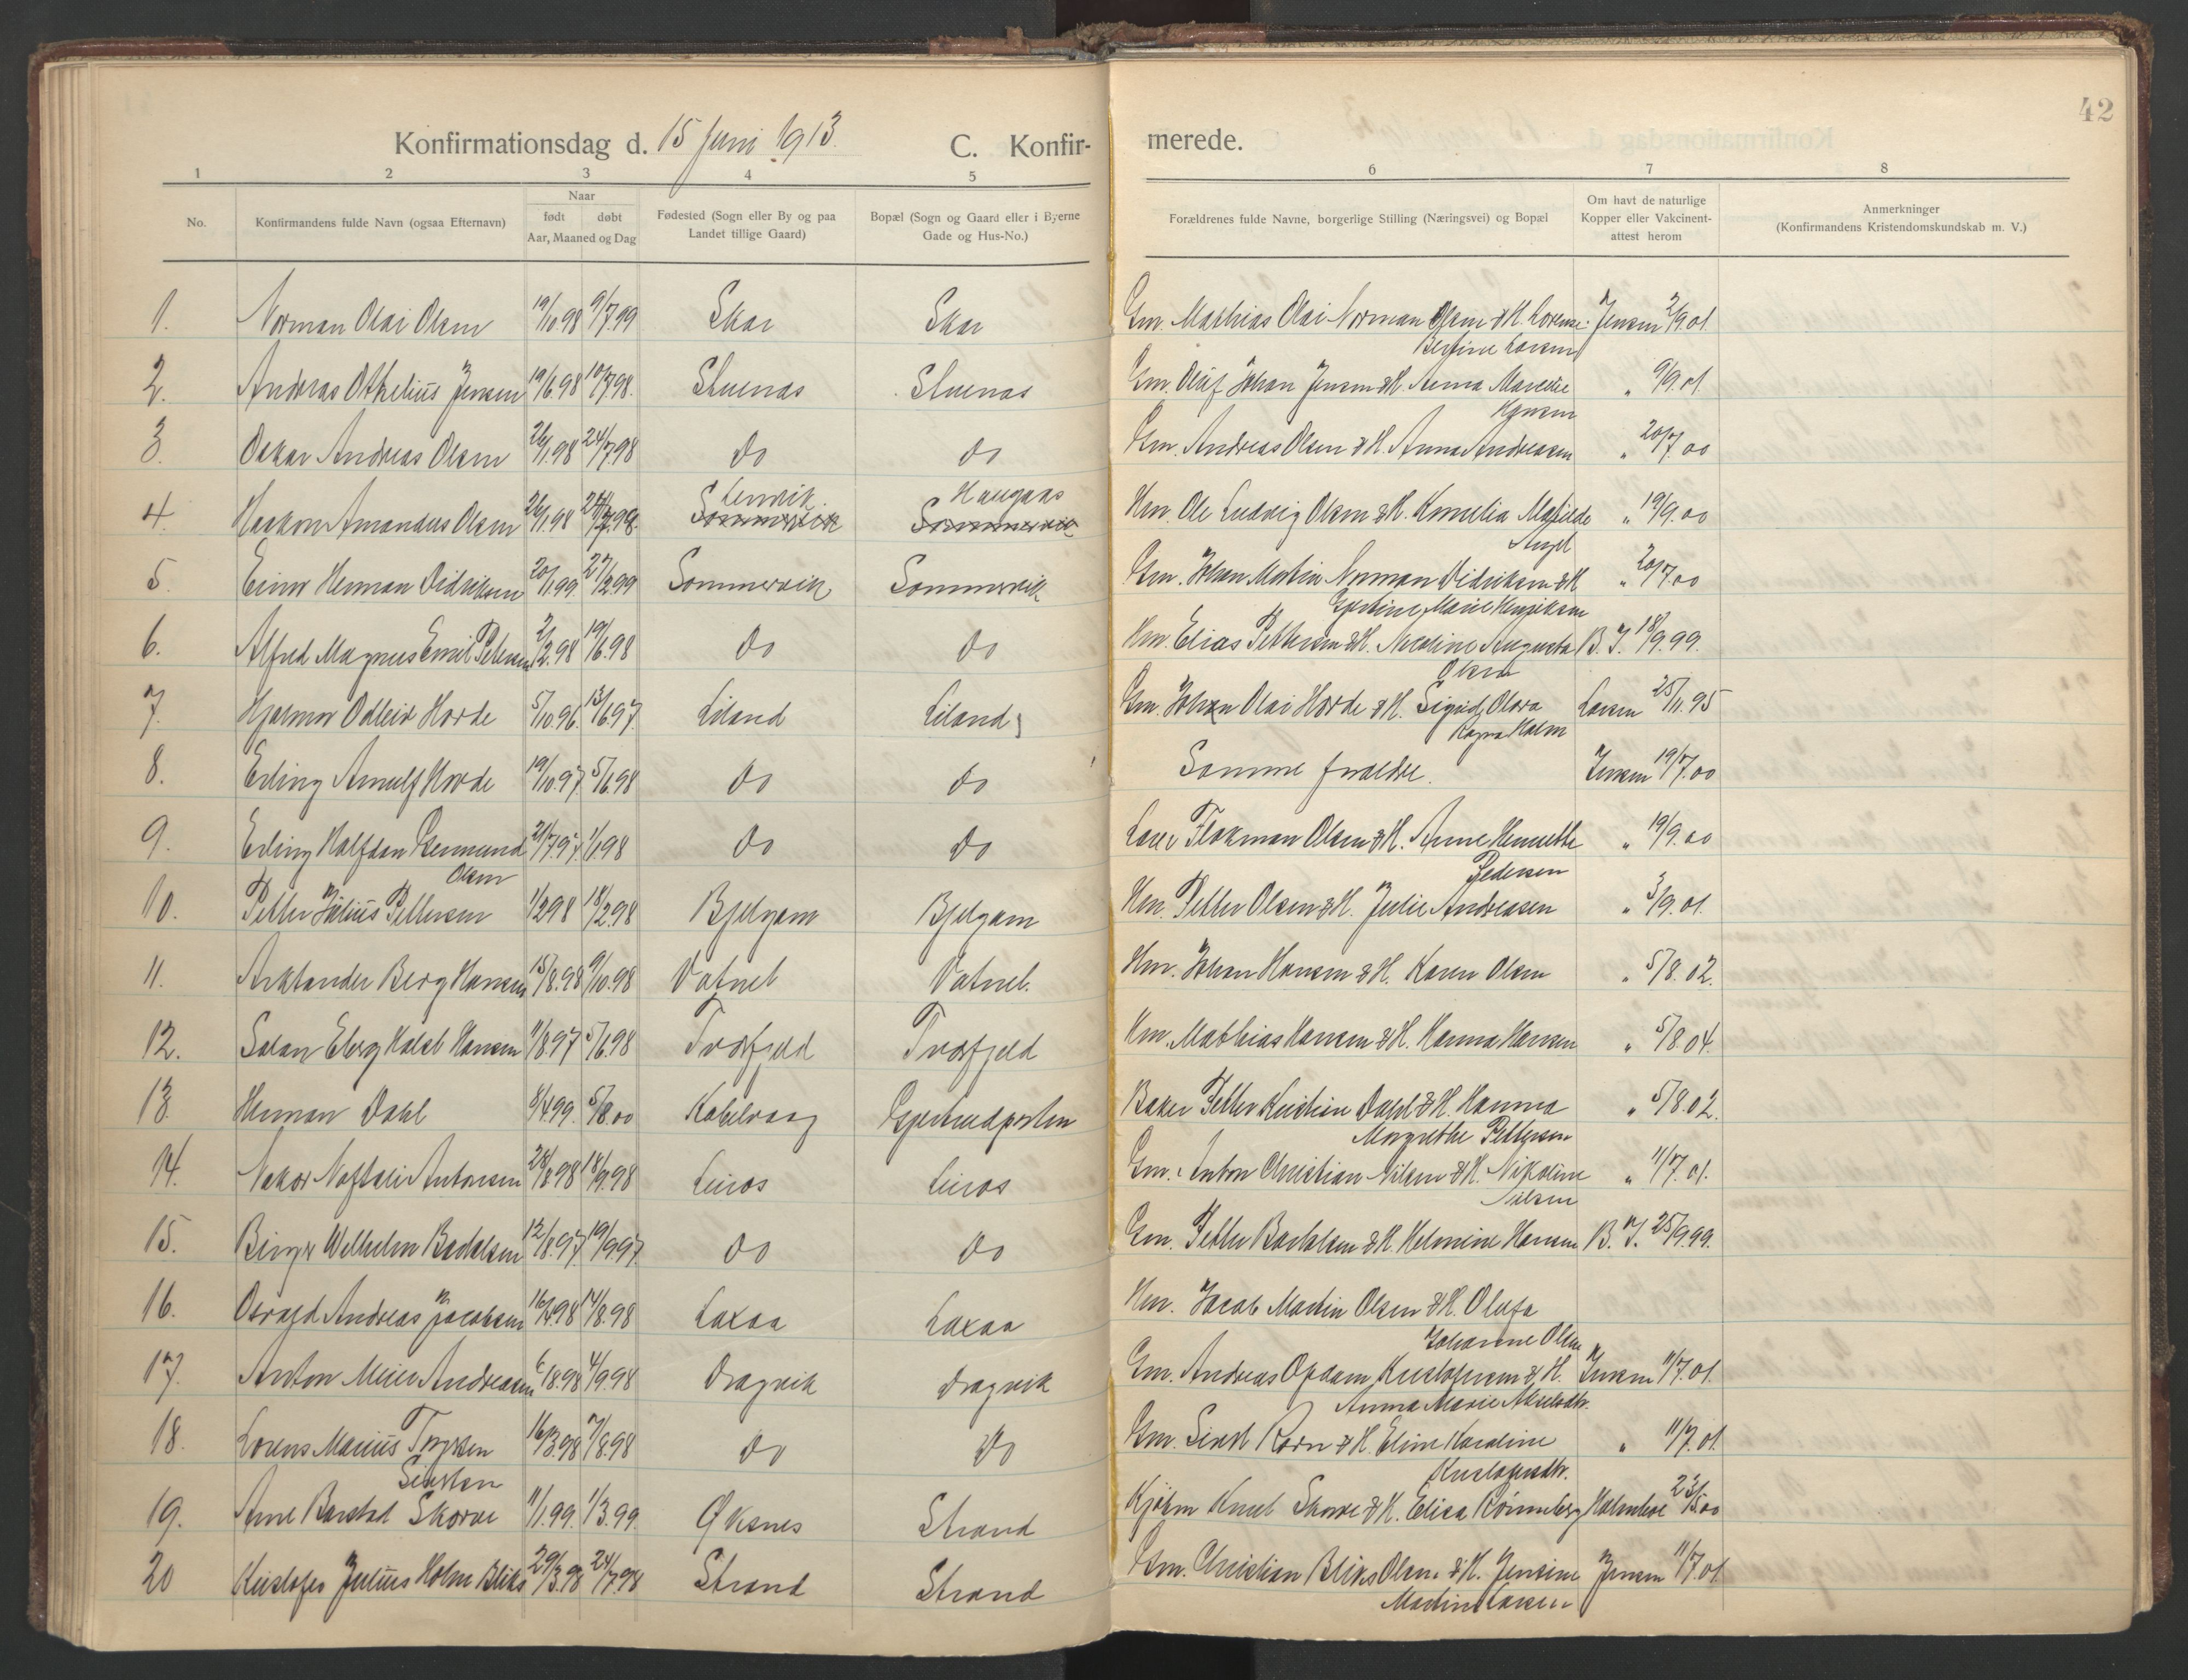 42
Konfirmationsdag d. 15 Juni 1913. C. Konfirmerede.
1 2 3 4 5 6 7 8
No. Konfirmandens fulde Navn (ogsaa Efternavn) Naar født døbt Aar, Maaned og Dag Fødested (Sogn eller By og paa Landet tillige Gaard) Bopæl (Sogn og Gaard eller i Byerne Gade og Hus-No.) Forældrenes fulde Navne, borgerlige Stilling (Næringsvei) og Bopæl Om havt de naturlige Kopper eller Vakcinent-attest herom Anmerkninger (Konfirmandens Kristendomskundskab m. V.)
1. Norman Olai Olsen 19/10 98 9/7.99 Skar Skar Gm. Mathias Olai Norman Olsen & H. Lorense Jensen 2/9.01.
Bertine Larsen
2. Andreas Othelius Jensen 19/6.98 10/7.98. Stuenas Stuenas Gm. Oluf Johan Jensen & H. Anna „ 9/9.01.
3. Oskar Andreas Olsen 26/1.98 24/7.98 do do Gm. Andreas Olsen & H. Anna Andreasen „ 20/7.00
4. Haakon Amandus Olsen 26/1.98 Lenvik Sommervik Haugaas Sommervik Hm. Ole Ludvig Olsen & H. Kornelia „ 19/9.00
5. Einar Herman Didriksen 20/1.99. 27/2.99 Sommervik Sommervik Gm. Johan Martin Norman Didriksen & H. „ 20/7.00
Marie
6. Alfred Magnus Emil Petersen 2/2.98 19/6.98 do do Hm. Elias Pettersen & H. Nicoline Augusta B. J. 18/9.99.
Olsen
7. Hjalmar Odleiv Horde 5/10 96. 13/6 97. Liland Liland Gm. Johan Olai Horde & H. Sigrid Olava Larsen 25/11.95
Ragna Holm
8. Erling Arnulf Horde 19/10.97 5/6.98 do do Samme foreldre. Jensen 19/7.00
9. Erling Halfdan 21/7.97. 1/1.98 do do Flakman Olsen & H. Anne Henrette „ 19/9.00
Olsen Pedersen
10. Petter Julius Pettersen 1/2 98 18/2.98 Bjelgam Bjelgam Hm. Petter Olsen & H. Julie Andreasen „ 3/9.01.
11. Arktander Berg Hansen 15/8.98 9/10.98 Vatnet Vatnet. Hm. Johan Hansen & H. Karen Olsen „ 5/8.02.
12. Hansen 11/8 97 5/6.98 Tverfjeld Tverfjeld Hm. Mathias Hansen & H. Hanna Hansen „ 5/8.04.
13. Herman Dahl 8/4 99. 5/8.00 Kabelvaag Baker Petter Kristian Dahl & H. Hanna „ 5/8.02.
Margrethe Pettersen
14. Naftali Antonsen 28/8 98 18/9.98 Leiros Leiros Gm. Anton Christian Nilsen & H. Nikoline „ 11/7.01.
Nilsen
15. Birger Wilhelm 12/8.97. 19/9.97. do do Gm. Petter & H. Helmine Hansen B. J. 25/9.99.
16. Osvald Andreas Jacobsen 16/4 98 14/8.98 Laxaa Laxaa Hm. Jacob Martin Olsen & H. Olufa
Johanne Olsen
17. Anton Meier Andreasen 6/8.98 4/9.98 Dragvik Dragvik Gm. Andreas Opdam Kristofersen & H. Jensen 11/7.01.
Anna Marie
18. Lorens Marius 16/3.98 7/8.98 do do Gm. Korn & H. Eline Karoline „ 11/7.01.
Kristofersdtr.
19. Arne Skorve 11/1.99. 1/3.99. Øksnes Strand Kjøbm Knut Skorve & H. Elisa Rønneberg Holmboe 23/5.00
20 Kristofer Julius Holm Bliks 29/3.98 24/7.98 Strand Strand Gm. Christian Bliks Olsen & H. Jensine Jensen 11/7.01.
Martine Larsen